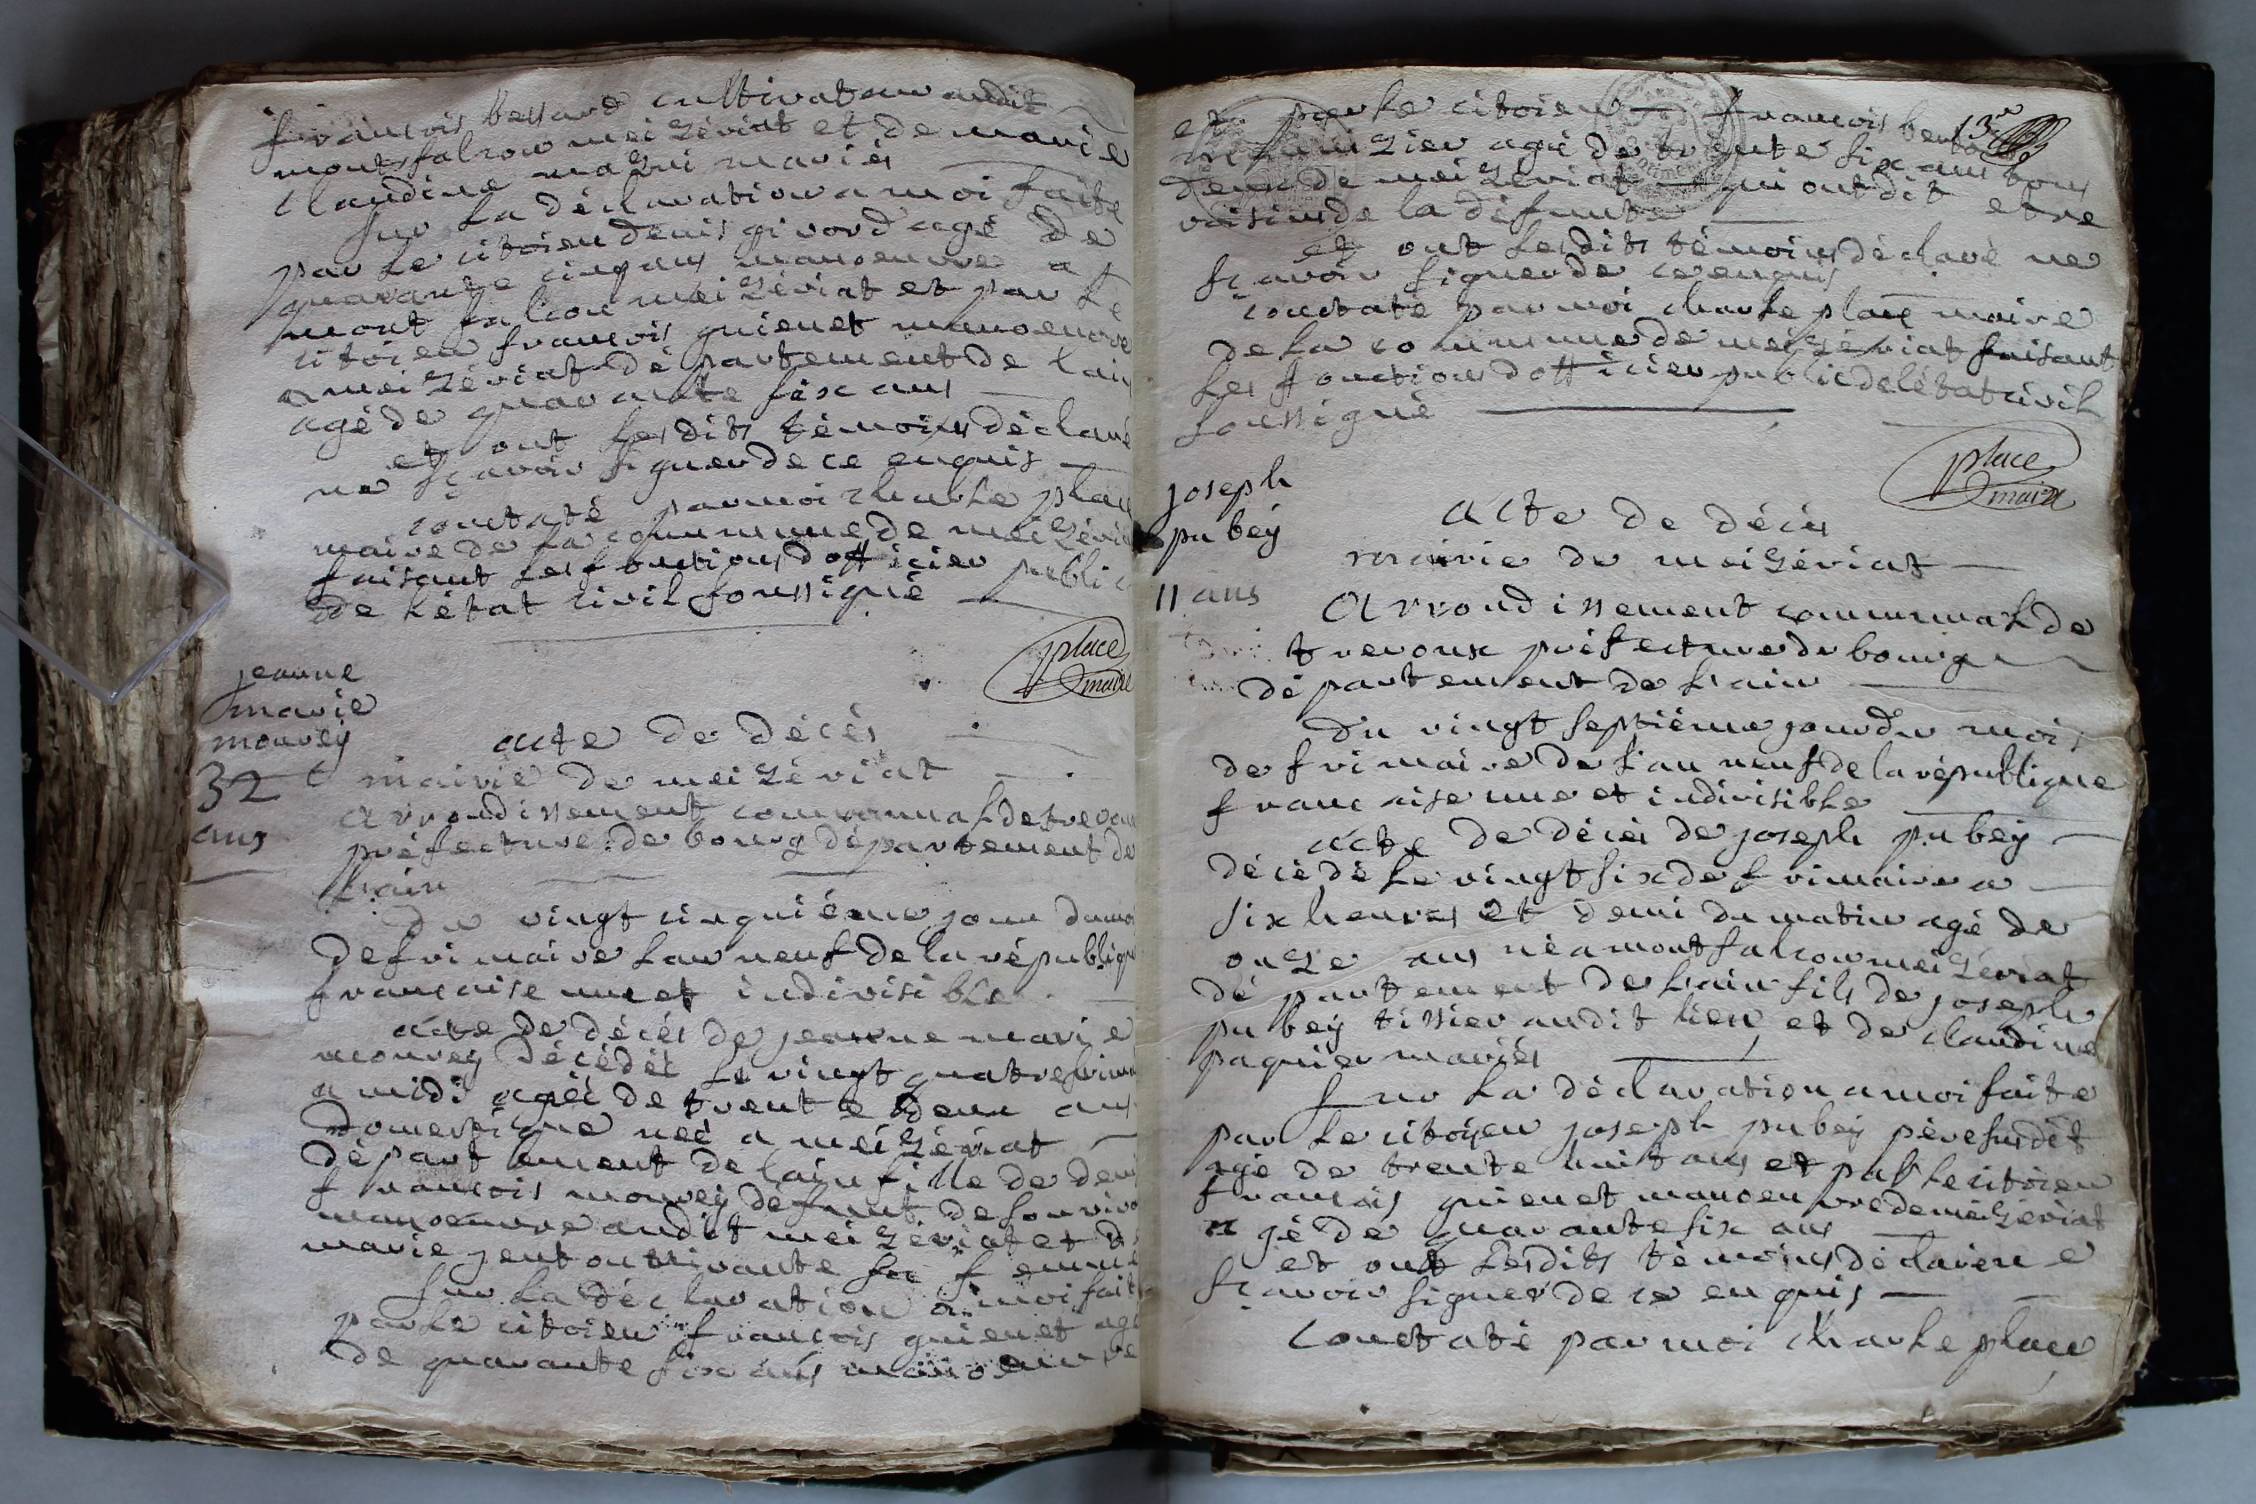 françois bessard cultivateur audit
montfalcon meizériat et de marie
claudine mariés
sur la déclaration a moi faite
par le citoien denis givord agé de
quarante cinq ans manoeuvre a
mont falcon meizériat et par le
citoien françois guienet manoeuvre
a meizériat département de l'ain
agé de quarante six ans
et ont lesdits témoins déclaré
ne sçavoir signer de ce enquis
constaté par moi charle place
maire de la commune de meizériat
faisant les fonctions dofficier public
de l'état civil soussigné
place
maire
jeanne
marie
mourey
32
ans
acte de décés
mairie de meizériat
arrondissement communal de trevoux
préfecture de bourg département de
l'ain
du vingt cinquiéme jour du mois
de frimaire l'an neuf de la république
française une et indivisible
acte de décés de jeanne marie
mourey décédée le vingt quatre frimaire
a midi agée de trente deux ans
domestique née a meizériat
département de l'ain fille de
françois mourey defunt de son vivant
manoeuvre audit meizériat et de
marie vivante sa femme
sur la déclaration a moi faite
par le citoien françois guienet agé
de quarante six ans manoeuvre
13e
et par le citoien françois
agé de trente six ans tous
deux de meizériat qui ont dit etre
voisins de la défunte
et ont lesdits témoins déclaré ne
sçavoir signer de ce enquis
constaté par moi charle place maire
de la commune de meizériat faisant
les fonctions dofficier public de l'état civil
soussigné
place
maire
joseph
pubey
11 ans
acte de décés
mairie de meizériat
arrondissement communal de
trevoux préfecture de bourg
département de l'ain
du vingt septiéme jour du mois
de frimaire de l'an neuf de la république
française une et indivisible
acte de décés de joseph pubey
décédé le vingt six de frimaire a
six heures et demi du matin agé de
onze ans né a montfalcon meizériat
département de l'ain fils de joseph
pubey tissier audit lieu et de claudine
paquier mariés
sur la déclaration a moi faite
par le citoyen joseph pubey père susdit
agé de trente huit ans et par le citoien
françois guienet manoeuvre de meizériat
agé de quarante six ans
et ont lesdits témoins déclaré ne
sçavoir signer de ce enquis
constaté par moi charle place